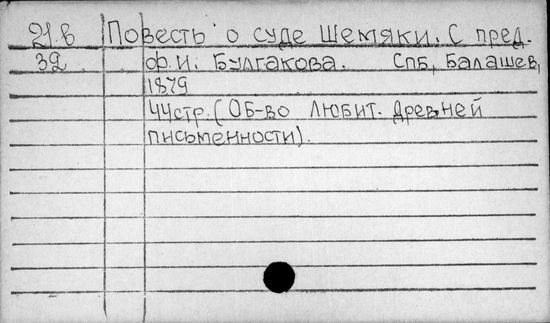 21.в Повесть о суде Шемяки. С пред.
39 Ф.И. Булгакова. Спб, Балашев,
1879
44стр. (Об-во любит. древней
письменности).